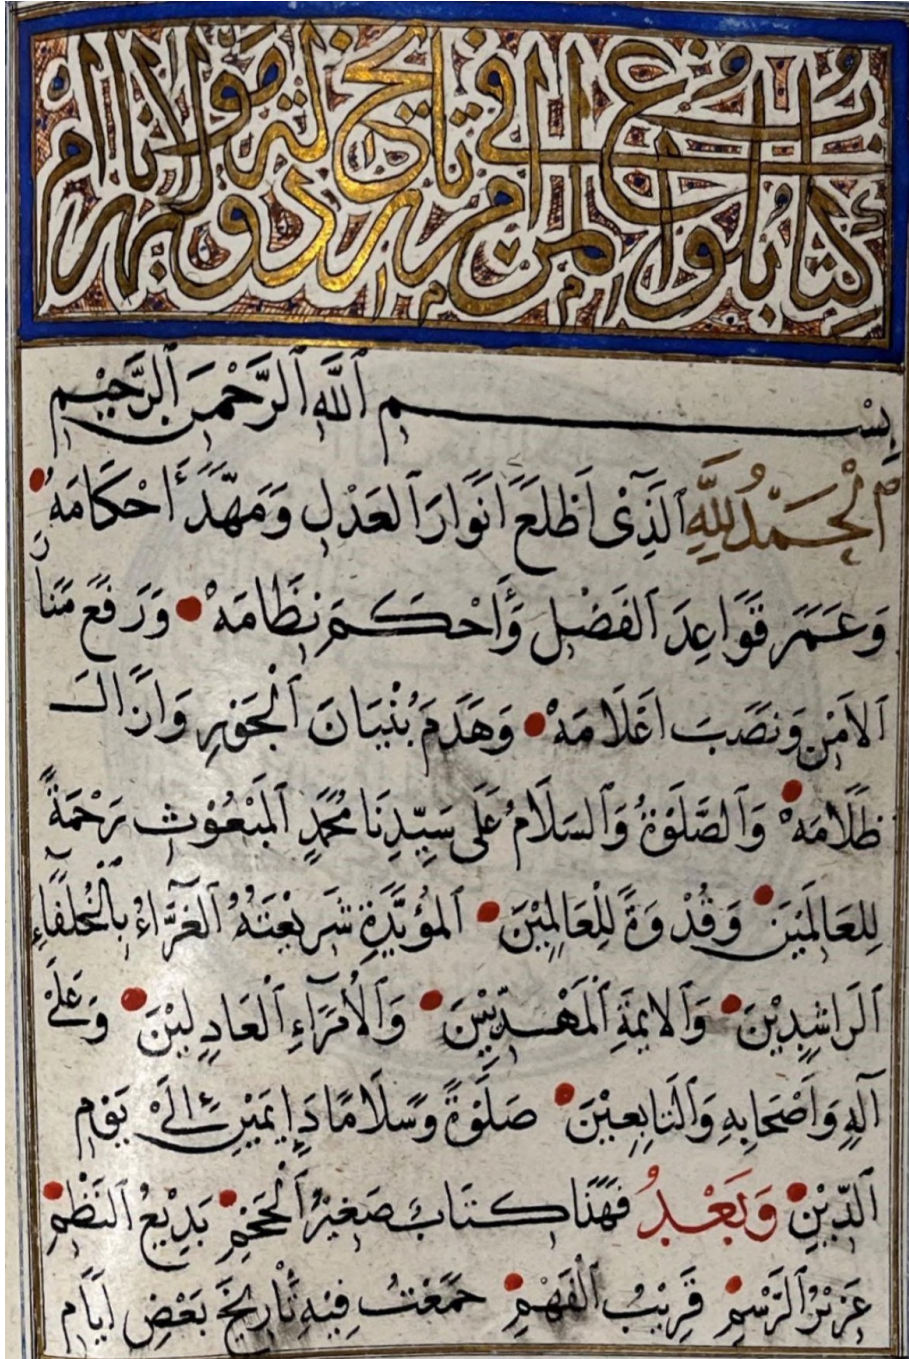 كتاب بلوغ المرام في تاريخ دولة مولانا
بِسْمِ ٱللَّهِ ٱلرَّحْمٰنِ ٱلرَّحِيْمِ
ٱلْحَمْدُ لِلَّهِ ٱلَّذِىٓ اَطْلَعَ اَنْوَارَ ٱلعَدْلِ وَمَهَّدَ أَحْكَامَهُ
وَعَمَّرَ قَوَاعِدَ ٱلفَضْلِ وَأَحْكَمَ نِظَامَهْ وَرَفَعَ مَنَارَ
ٱلاَمْنِ وَنَصَبَ اَعْلَامَهْ وَهَدَمَ بُنْيَانَ ٱلْجَوْرِ وَازَالَ
ظَلَامَهْ وَٱلصَّلَوٰةُ وَٱلسَلَامُ عَلَى سَيِّدِنَا مُحَمَّدٍ ٱلمَبْعُوْثِ رَحْمَةً
لِلعَالَمَيْنَ وَقُدْوَةً لِلْعَالِمِيْنَ ٱلمُؤَيَّدَةِ شَرِيْعَتُهُ ٱلغَرَّآءُ بِٱلْخُلَفَآءِ
ٱلرَاشِدِيْنَ وَٱلايِمَّةِ ٱلْمَهْدِيِّيْنَ وَٱلْأُمَرَآءِ ٱلْعَادِلِيْنَ وَعَلَىٓ
آلِهِ وَاَصْحَابِهِ وَٱلتَابِعِيْنَ صَلَوٰةً وَسَلَامًا دَايِمَيْنِ إِلَىٰ يَوْمِ
ٱلدِّيْنِ وَبَعْدُ فَهٰذَا كِتَابٌ صَغِيْرُ ٱلْحَجْمِ بَدِيْعُ ٱلنَظْمِ
عَزِيْزُ ٱلرَسْمِ قَرِيْبُ ٱلْفَهْمِ جَمَعْتُ فِيْهِ تَارِيْخَ بَعْضِ اَيَّامِ